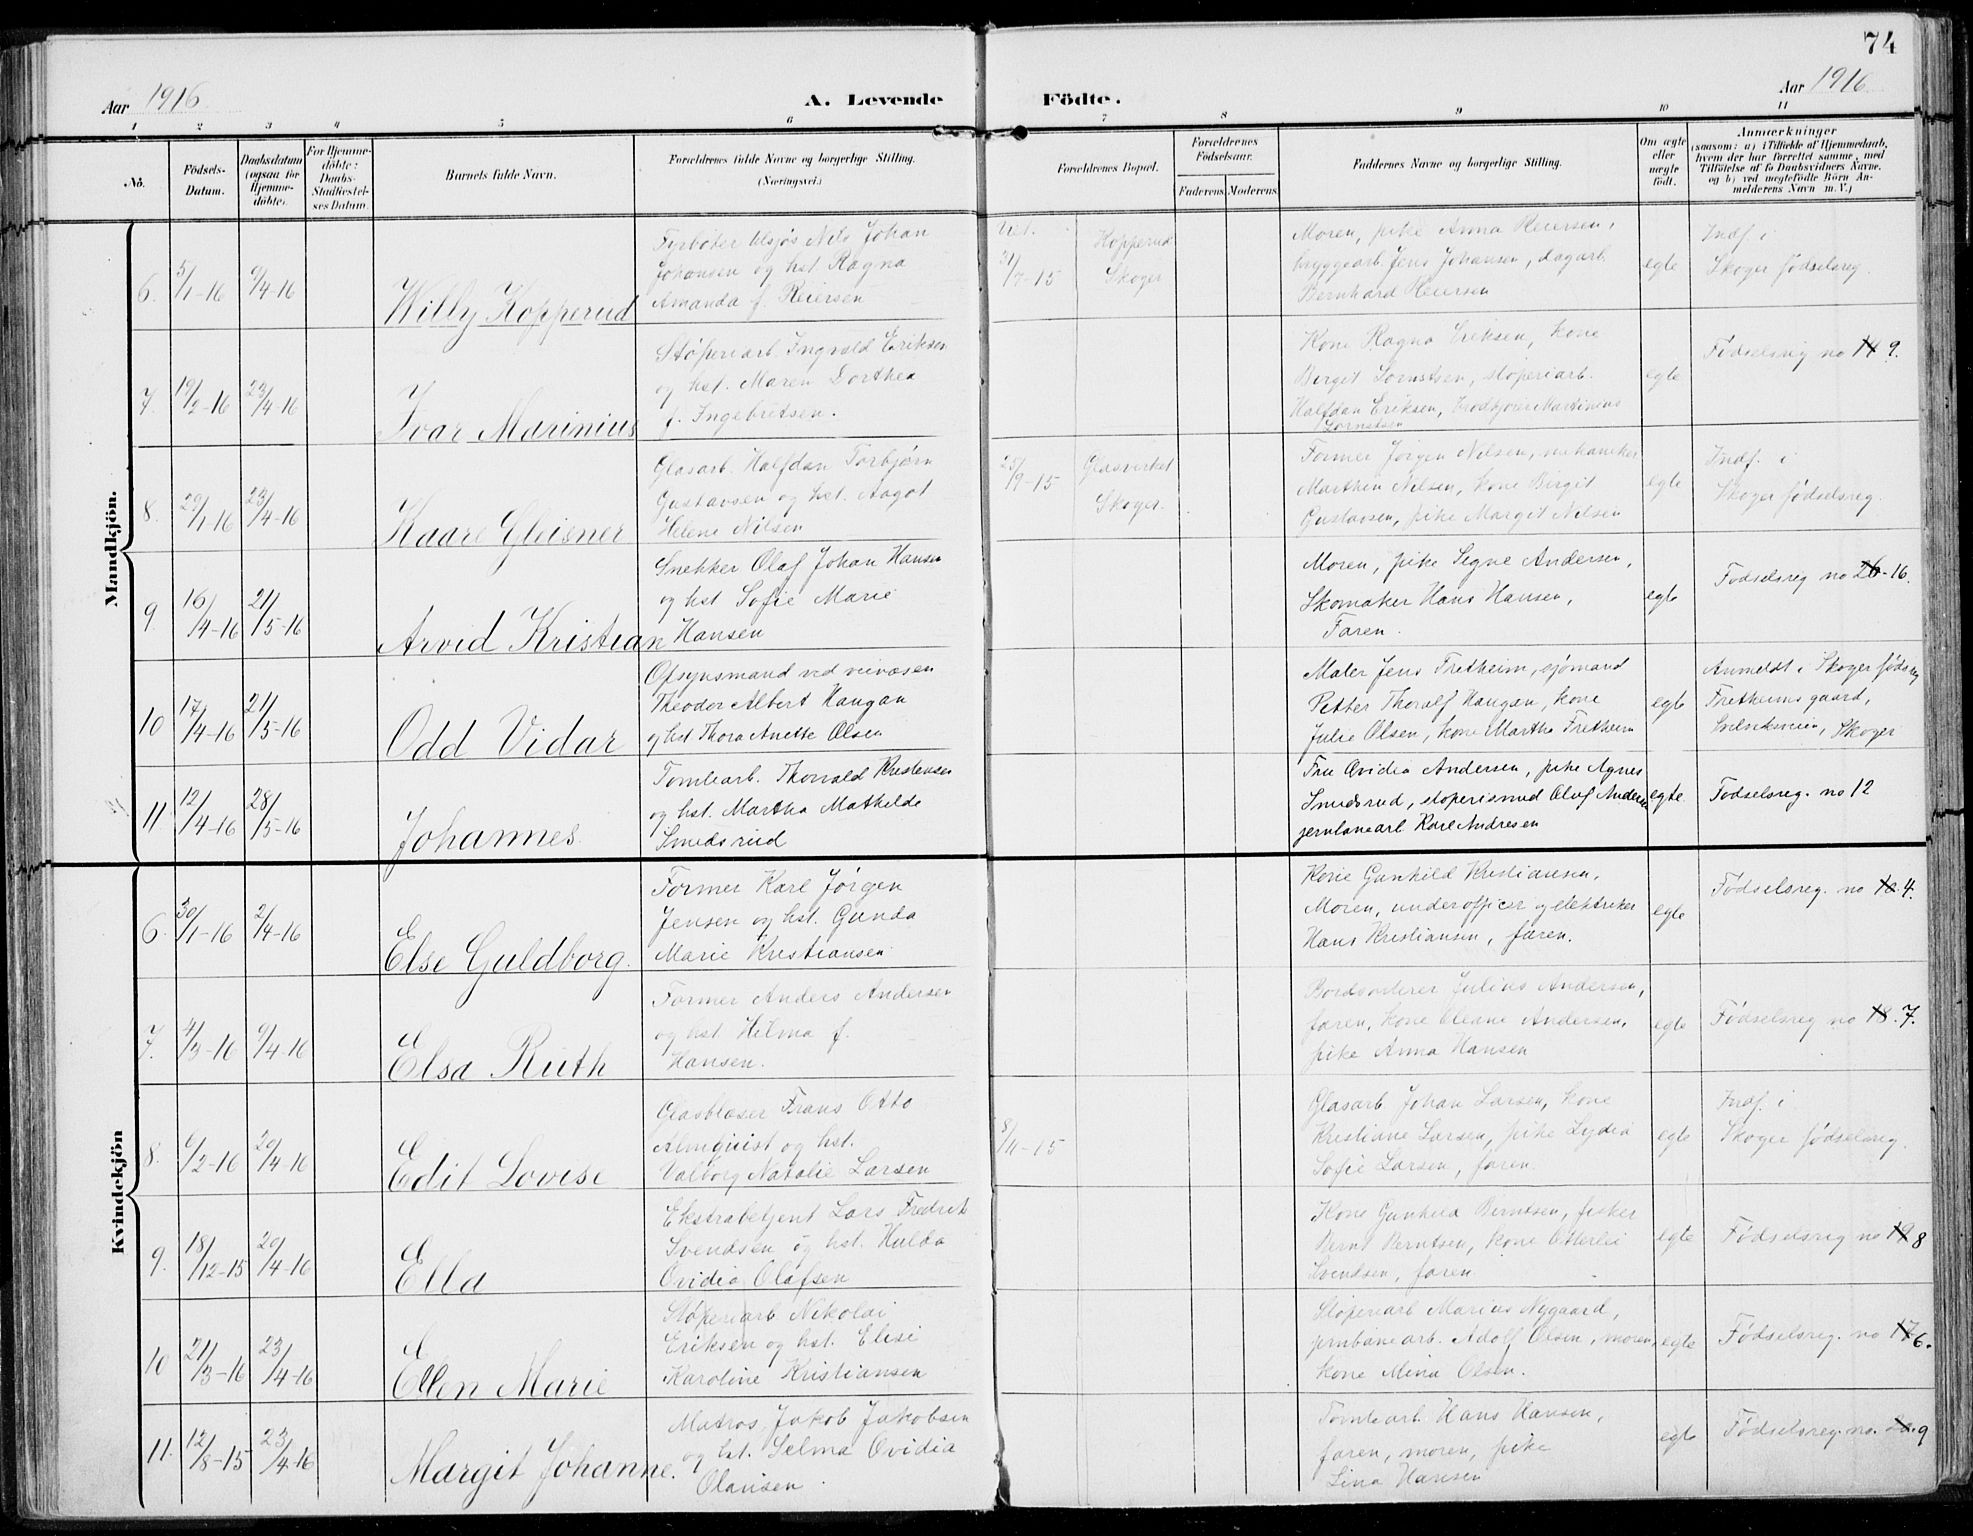 74
Aar 1916
A. Levende Födte.
Aar 1916
1 2 3 4 5 6 7 8 9 10 11
No.
Födsels-
Datum.
Daabsdatum
(ogsaa for
Hjemme-
döbte).
For Hjemme-
döbte:
Daabs-
Stadfæstel-
ses Datum.
Barnets fulde Navn.
Forældrenes fulde Navne og borgerlige Stilling.
(Næringsvei.)
Forældrenes Bopæl.
Forældrenes
Födselsaar.
Faderens. Moderens.
Faddernes Navne og borgerlige Stilling.
Om ægte
eller
uægte
födt.
Anmærkninger
(saasom: a) i Tilfælde af Hjemmedaab,
hvem der har forrettet samme, med
Tilföielse af to Daabsvidners Navne,
og b) ved uegtefödte Börn An-
melderens Navn m. V.)
Mandkjön.
6. 5/1-16 9/4-16
Willy Kopperud
Fyrbøter tilsjøs Nils Johan
Johansen og hst. Ragna
Amanda f. Reiersen
Vit.
31/7-15
Kopperud
Skoger
Moren, pike Anna Reiersen,
bryggearb. Jens Johansen, dagarb.
Bernhard Reiersen
egte
Indf. i
Skoger fødselsreg.
7. 19/2-16 23/4-16
Ivar Marinius
Støperiarb. Ingvald Eriksen
og hst. Maren Dorthea
f. Ingebretsen.
Kone Ragna Eriksen, kone
Birgit Lorntsen, støperiarb.
Halfdan Eriksen, Martinius
Lorntsen
egte
Fødselsreg no 14 9.
8. 29/1-16 23/4-16
Kaare Gleisner
Glasarb. Halfdan Torbjørn
Gustavsen og hst. Aagot
Helene Nilsen
25/9-15
Glasverket
Skoger.
Former Jørgen Nilsen, mekaniker
Marthin Nilsen, kone Birgit
Gustavsen, pike Margit Nilsen
egte
Indf. i
Skoger fødselsreg.
9. 16/4-16 21/5-16
Arvid Kristian
Snekker Olaf Johan Hansen
og hst Sofie Marie
Hansen
Moren, pike Signe Andersen,
Skomaker Hans Hansen,
Faren.
egte
Fødselsreg no 26-16.
10 17/4-16 21/5-16
Odd Vidar
Opsynsmand ved veivæsen
Theodor Albert Haugan
og hst Thora Anette Olsen
Maler Jens Fretheim, sjømand
Petter Thoralf Haugan, kone
Julie Olsen, kone Martha Fretheim
egte
Anmeldt i Skoger fødsreg
Fretheims gaard,
Skoger
11. 12/4-16 28/5-16
Johannes
Tomtearb. Thorvald Kristensen
og hst. Martha Mathilde
Smedsrud
Fru Ovidia Andersen, pike Agnes
Smedsrud, støperismed Olaf Andersen
jernbanearb. Karl Andresen
egte
Fødselsreg. no 12
Kvindekjön
6. 30/1-16 2/4-16
Else Guldborg.
Former Karl Jørgen
Jensen og hst. Gunda
Marie Kristiansen
Kone Gunhild Kristiansen,
Moren, underofficer og elektriker
Hans Kristiansen, faren.
egte
Fødselsreg. no 10. 4.
7. 4/3-16 9/4-16
Elsa Ruth
Former Anders Andersen
og hst Hilma f.
Hansen.
Bordsorterer Julius Andersen,
faren, kone Oleane Andersen,
pike Anna Hansen
egte
Fødselsreg no 18. 7.
8. 6/2-16 20/4-16
Edit Lovise
Glasblaser Frans Otto
Almquist og hst.
Valborg Natalie Larsen
8/11-15
Glasarb Johan Larsen, kone
Kristiane Larsen, pike Lydia
Sofie Larsen, faren.
egte
Indf. i
Skoger fødselsreg.
9. 18/12-15 20/4-16
Ella
Ekstrabetjent Lars Fredrik
Svendsen og hst. Hulda
Ovidia Olafsen
Kone Gunhild Berntsen, fisker
Bernt Berntsen, kone Otterlei
Svendsen, faren.
egte
Fødselsreg no 19 8
10 21/3-16 23/4-16
Ellen Marie
Støperiarb Nikolai
Eriksen og hst. Elisi
Karoline Kristiansen
Støperiarb Marius Nygaard,
jernbanearb. Adolf Olsen, moren,
kone Mina Olsen.
egte
Fødselsreg. no 17 6.
11. 12/8-15 23/4-16
Margit Johanne.
Matros Jakob Jakobsen
og hst. Selma Ovidia
Olausen
Tomtearb. Hans Hansen,
faren, moren, pike
Lina Hansen
egte
Fødselsreg. no. 9